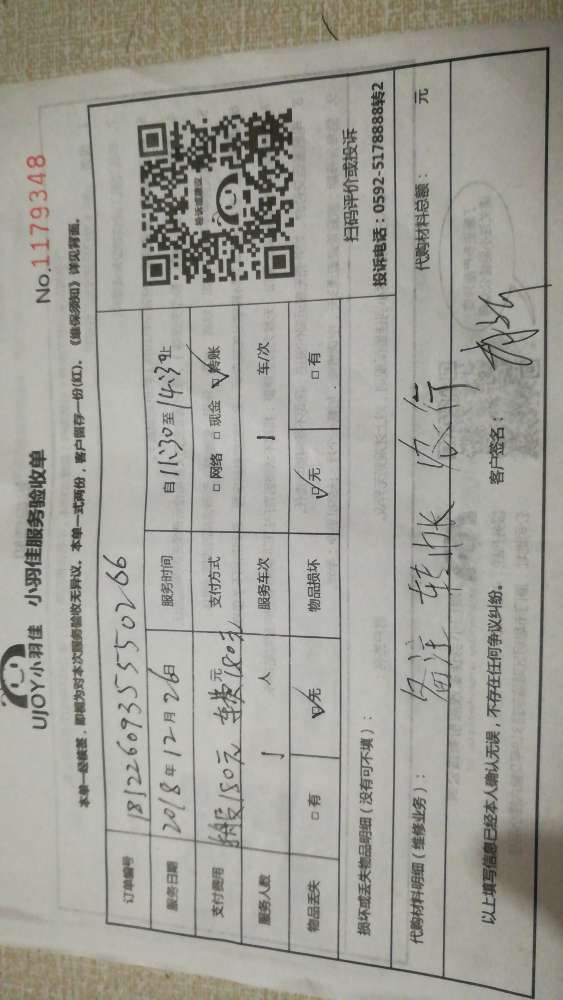 UJOY小羽佳 小羽佳服务验收单
No.1179348
本单一经核签，即视为对本次服务验收无异议。本单一式两份，客户留存一份(红)。《维保须知》详见背面。
订单编号 18122609355550266
服务日期 2018年12月26日 服务时间 自11:30至14:30止
支付费用 180元 车费180元 元 支付方式 □网络 □现金 ☑转账
服务人数 1 人 服务车次 1 车/次
物品丢失 □有 ☑无 物品损坏 ☑无 □有
扫码评价或投诉
投诉电话：0592-5178888转2
损坏或丢失物品明细（没有可不填）：
代购材料明细（维修业务）： 代购材料总额： 元
备注 转账 农行
以上填写信息已经本人确认无误，不存在任何争议纠纷。 客户签名：